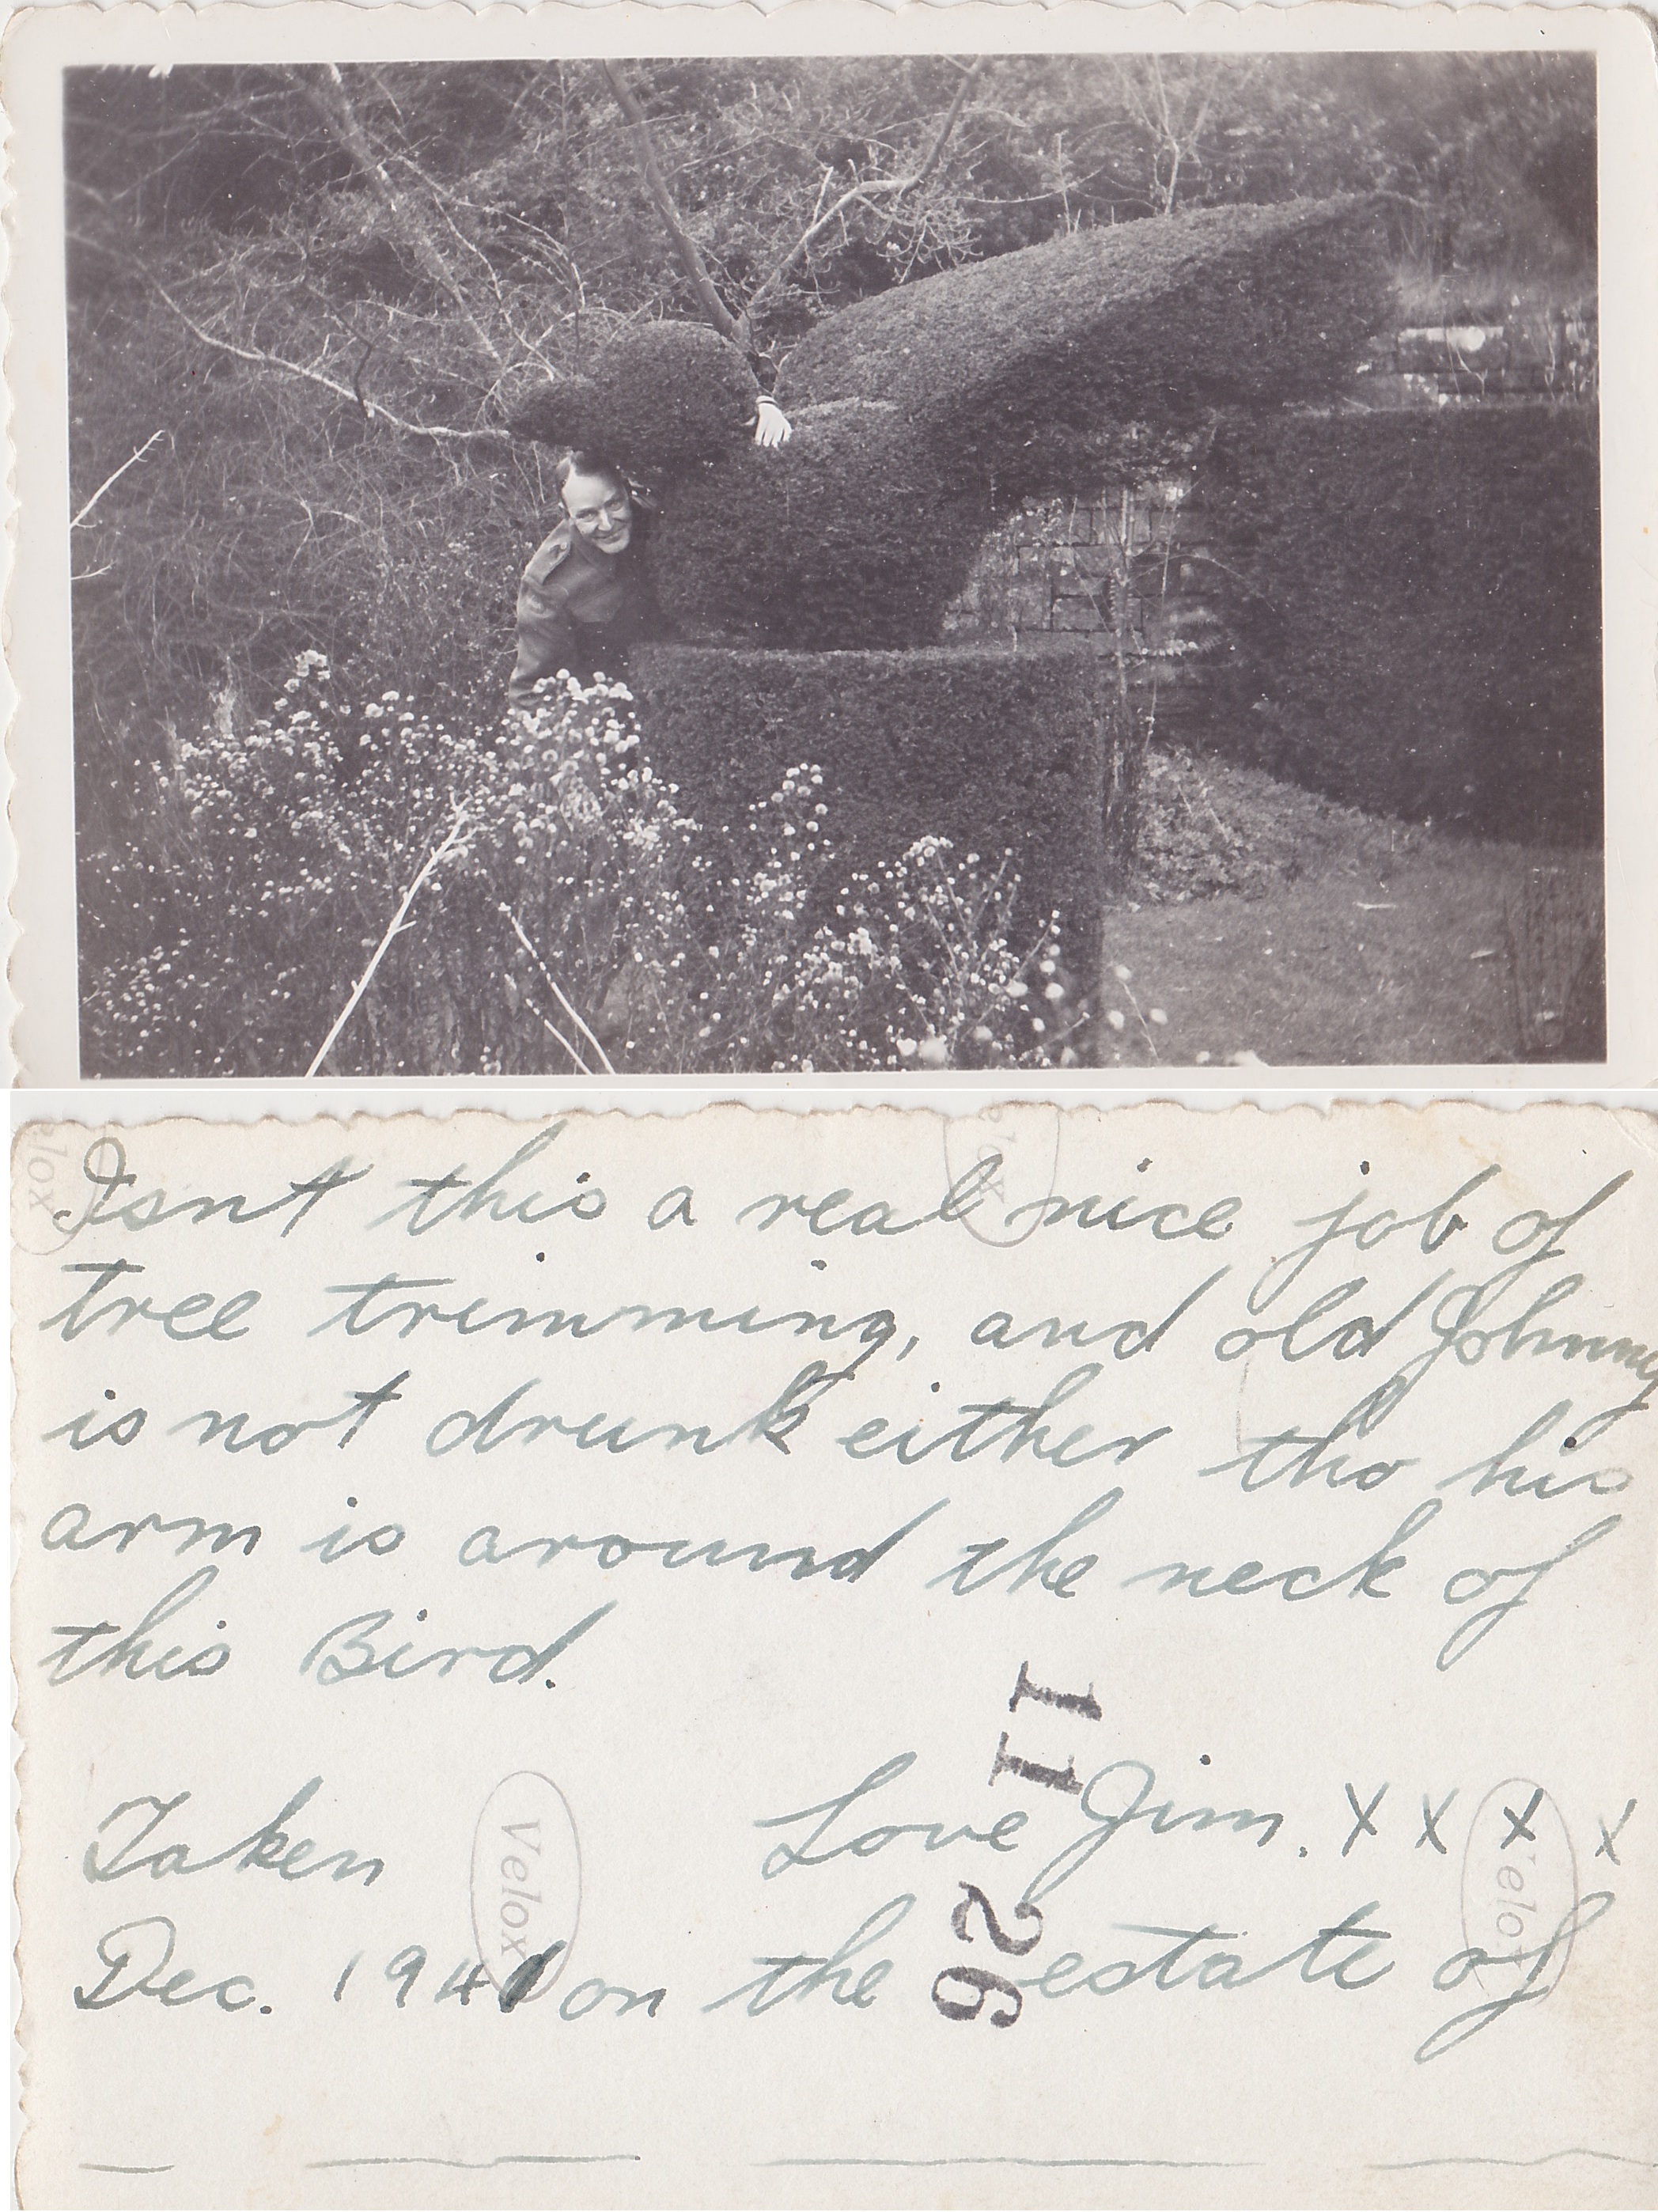 Isnt this a real nice job of
tree trimming, and old Johnny
is not drunk either tho his
arm is around the neck of
this Bird.
Taken
Love Jim. x x x x
Dec. 1941 on the estate of
11
26
Velox
Velox
elox
elox